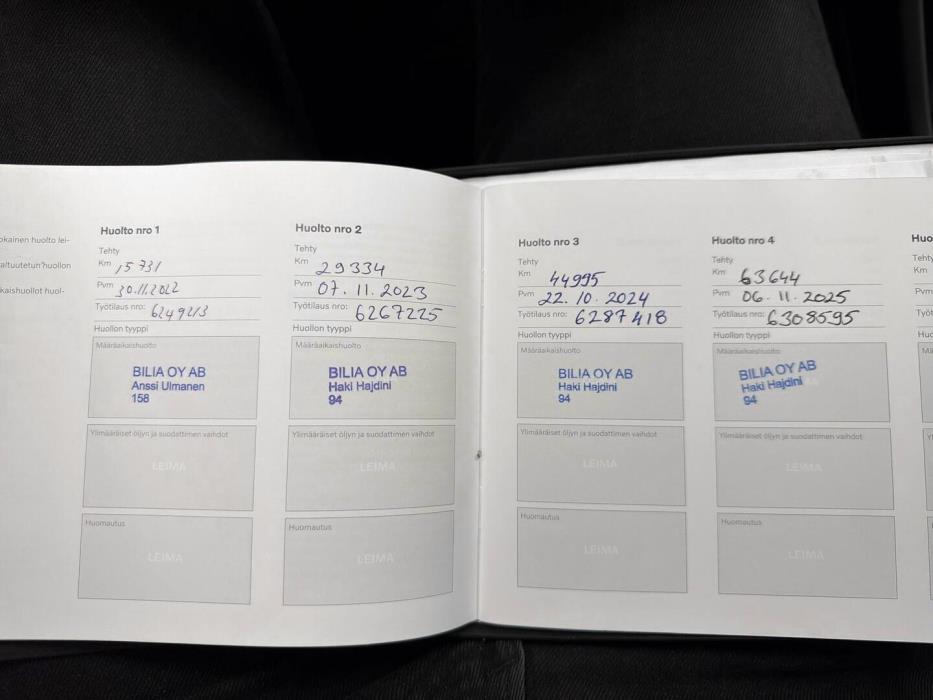 okainen huolto lei-
altuutetun huollon
kaishuollot huol-
Huolto nro 1
Tehty
Km 15731
Pvm 30.11.2022
Työtilaus nro: 6249213
Huollon tyyppi
Määräaikaishuolto
BILIA OY AB
Anssi Ulmanen
158
Ylimääräiset öljyn ja suodattimen vaihdot
LEIMA
Huomautus
LEIMA
Huolto nro 2
Tehty
Km 29334
Pvm 07.11.2023
Työtilaus nro: 6267225
Huollon tyyppi
Määräaikaishuolto
BILIA OY AB
Haki Hajdini
94
Ylimääräiset öljyn ja suodattimen vaihdot
LEIMA
Huomautus
LEIMA
Huolto nro 3
Tehty
Km 44995
Pvm 22.10.2024
Työtilaus nro: 6287418
Huollon tyyppi
Määräaikaishuolto
BILIA OY AB
Haki Hajdini
94
Ylimääräiset öljyn ja suodattimen vaihdot
LEIMA
Huomautus
LEIMA
Huolto nro 4
Tehty
Km 63644
Pvm 06.11.2025
Työtilaus nro: 6308595
Huollon tyyppi
Määräaikaishuolto
BILIA OY AB
Haki Hajdini
94
Ylimääräiset öljyn ja suodattimen vaihdot
LEIMA
Huomautus
LEIMA
Huo
Tehty
Km
Pvm
Työt
Huo